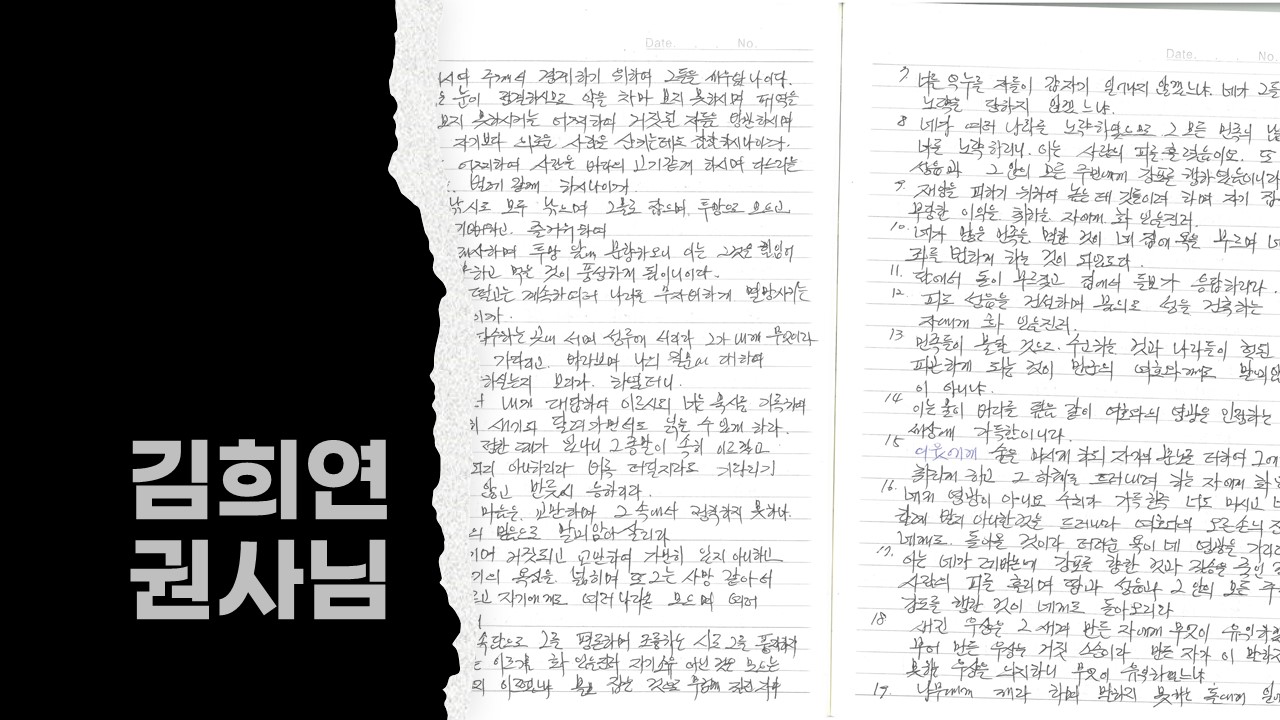 김희연
권사님
Date. . . No.
경계하기 위하여 그들을 세우셨나이다.
눈이 정결하시므로 악을 차마 보지 못하시며 패역을
보지 못하시거늘 어찌하여 거짓된 자들을 방관하시며
자기보다 의로운 사람을 삼키는데도 잠잠하시나이까.
어찌하여 사람을 바다의 고기 같게 하시며 다스리는
없는 벌레 같게 하시나이까.
낚시로 모두 낚으며 그물로 잡으며, 투망으로 모으고
기뻐하고 즐거워하여
제사하며 투망 앞에 분향하오니 이는 그것을 힘입어
하고 먹는 것이 풍성하게 됨이니이다.
떨고는 계속하여 여러 나라를 무자비하게 멸망시키는
이까.
파수하는 곳에 서며 성루에 서리라 그가 내게 무엇이라
기다리고 바라보며 나의 질문에 대하여
하실는지 보리라. 하였더니.
내게 대답하여 이르시되 너는 묵시를 기록하여
에 새기되 달려가면서도 읽을 수 있게 하라.
정한 때가 있나니 그 종말이 속히 이르겠고
되지 아니하리라 비록 더딜지라도 기다리라
않고 반드시 응하리라.
마음은 교만하며 그 속에서 정직하지 못하나
의 믿음으로 말미암아 살리라
거짓되고 교만하여 가만히 있지 아니하고
기의 욕심을 넓히며 또 그는 사망 같아서
자기에게로 여러 나라를 모으며 여러
속담으로 그를 평론하며 조롱하는 시로 그를 풍자하지
이르기를 화 있을진저 자기 소유 아닌 것을 모으는
Date. . . No.
7 너를 억누를 자들이 갑자기 일어나지 않겠느냐. 네가 그들
노략을 당하지 않겠느냐.
8 네가 여러 나라를 노략하였으므로 그 모든 민족의 남
너를 노략하리니. 이는 사람의 피를 흘렸음이요. 또
성읍과 그 안의 모든 주민에게 강포를 행하였음이니라
9. 재앙을 피하기 위하여 높은 데 깃들이려 하며 자기 집
부당한 이익을 취하는 자에게 화 있을진저.
10. 네가 많은 민족을 멸한 것이 네 집에 욕을 부르며 네
죄를 범하게 하는 것이 되었도다.
11. 담에서 돌이 부르짖고 집에서 들보가 응답하리라.
12 피로 성읍을 건설하며 불의로 성을 건축하는
자에게 화 있을진저.
13 민족들이 불탈 것으로 수고하는 것과 나라들이 헛된
피곤하게 되는 것이 만군의 여호와께로 말미암
이 아니냐.
14 이는 물이 바다를 덮음 같이 여호와의 영광을 인정하는
세상에 가득함이니라.
15 이웃에게 술을 마시게 하되 자기의 분노를 더하여 그에
취하게 하고 그 하체를 드러내려 하는 자에게 화
16. 네게 영광이 아니요 수치가 가득한즉 너도 마시고
할례 받지 아니한 것을 드러내라 여호와의 오른손의 잔
네게로 돌아올 것이라 더러운 욕이 네 영광을 가리
17. 이는 네가 레바논에 강포를 행한 것과 짐승을 죽인 것
사람의 피를 흘리며 땅과 성읍과 그 안의 모든 주
강포를 행한 것이 네게로 돌아오리라
18 새긴 우상은 그 새겨 만든 자에게 무엇이 유익하
부어 만든 우상은 거짓 스승이라 만든 자가 이 말하지
못하는 우상을 의지하니 무엇이 유익하겠느냐.
19. 나무에게 깨라 하며 말하지 못하는 돌에게 일어